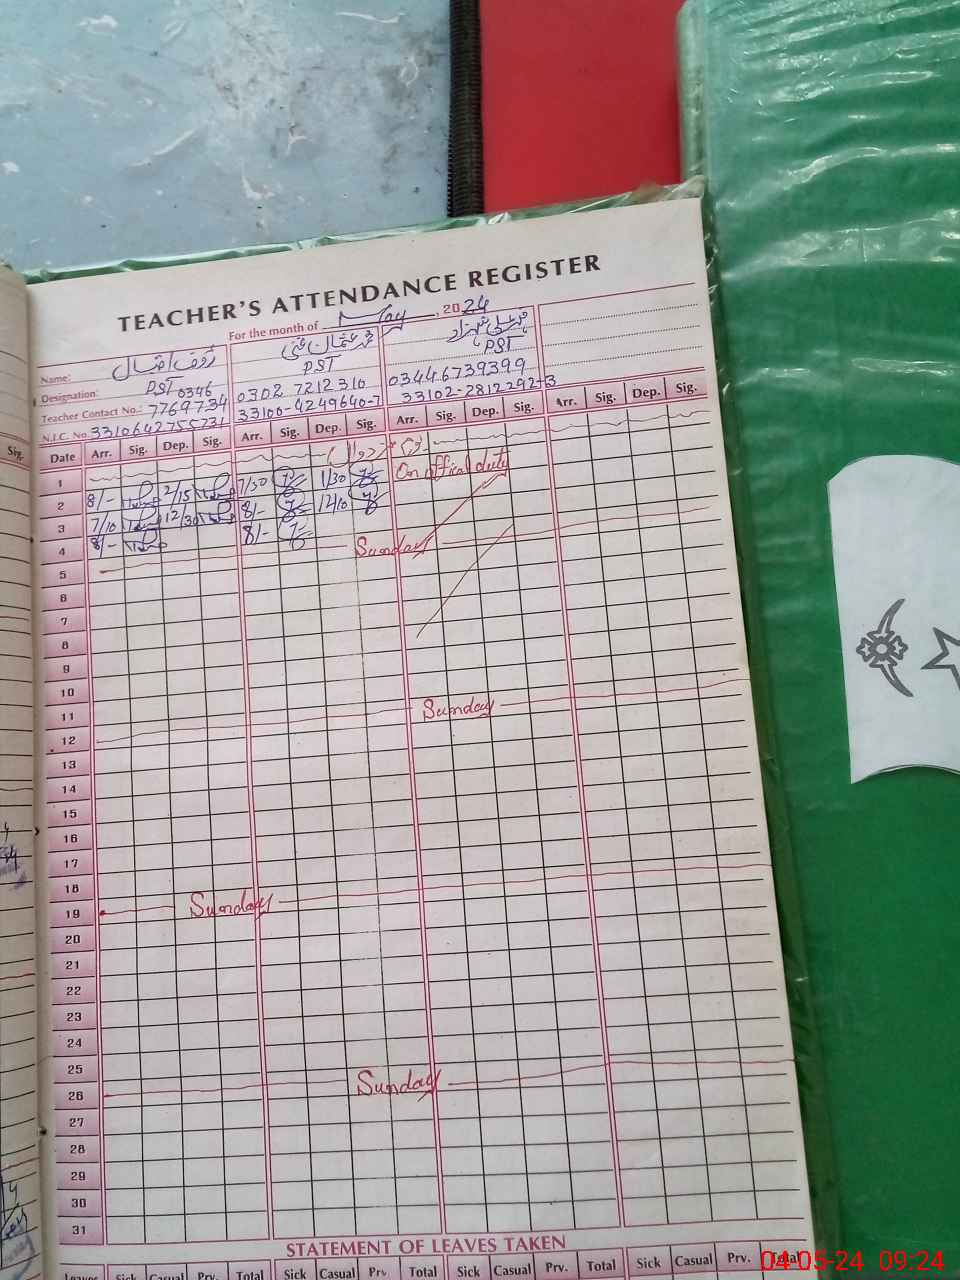 TEACHER'S ATTENDANCE REGISTER
For the month of May, 2024
Name:
Designation: PST PST PST
Teacher Contact No.: 0346 7769734 0302 7212310 03446739399
N.I.C. No. 3310642755731 33100-4249640-7 33102-2812292-3
Date Arr. Sig. Dep. Sig. Arr. Sig. Dep. Sig. Arr. Sig. Dep. Sig. Arr. Sig. Dep. Sig.
Sig.
1
2 8/- 2/15 7/30 1/30 On offical duty
3 7/10 12/30 8/- 12/10
4 8/- 8/-
5 Sunday
6
7
8
9
10
11
12 Sunday
13
14
15
16
17
18
19 Sunday
20
21
22
23
24
25
26 Sunday
27
28
29
30
31
STATEMENT OF LEAVES TAKEN
Leaves Sick Casual Prv. Total Sick Casual Prv. Total Sick Casual Prv. Total Sick Casual Prv. Total
04-05-24 09:24